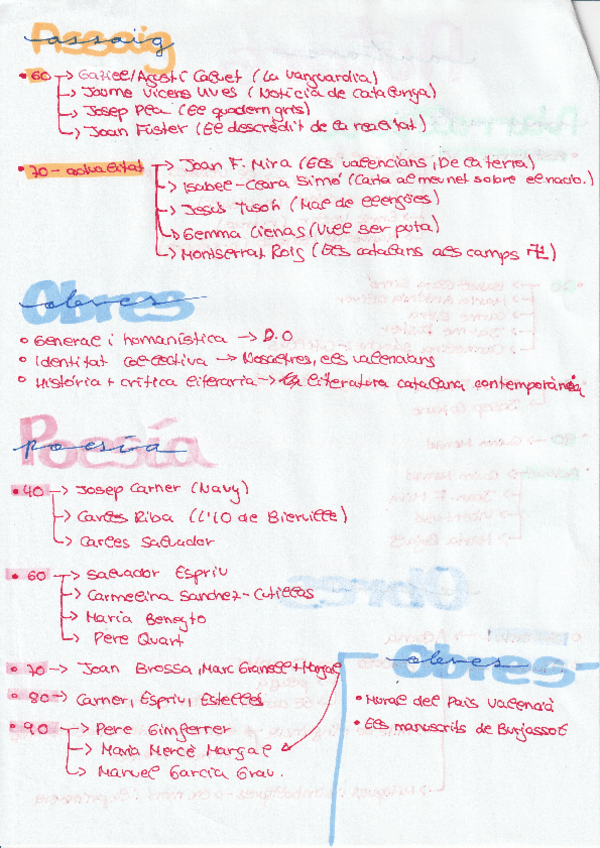 Assaig
assaig
• 60 → Gaziel/Agustí Calvet (La vanguardia)
→ Jaume Vicens Vives (Notícia de Catalunya)
→ Josep Pla (El quadern gris)
→ Joan Fuster (El descrèdit de la realitat)
• 70 - actualitat → Joan F. Mira (Els valencians; De la terra)
→ Isabel-Clara Simó (Carta al meu net sobre el nacio.)
→ Jesús Tuson (Mal de llengües)
→ Gemma Lienas (Vull ser puta)
→ Montserrat Roig (Els catalans als camps
Obres
obres
• General i homanística → D.O
• Identitat col·lectiva → Nosaltres, els valencians
• História + crítica literaria → La literatura catalana contemporània
Poesía
poesía
• 40 → Josep Carner (Navy)
→ Carles Riba (L'10 de Bierville)
→ Carles Salvador
• 60 → Salvador Espriu
→ Carmelina Sanchez-Cutillas
→ Maria Beneyto
→ Pere Quart
• 70 → Joan Brossa, Marc Granell + Marçal
• 80 → Carner, Espriu, Estellés
• 90 → Pere Gimferrer
→ Maria Mercè Marçal
→ Manuel Garcia Grau.
Obres
obres
• Mural del País Valencià
• Els manuscrits de Burjassot